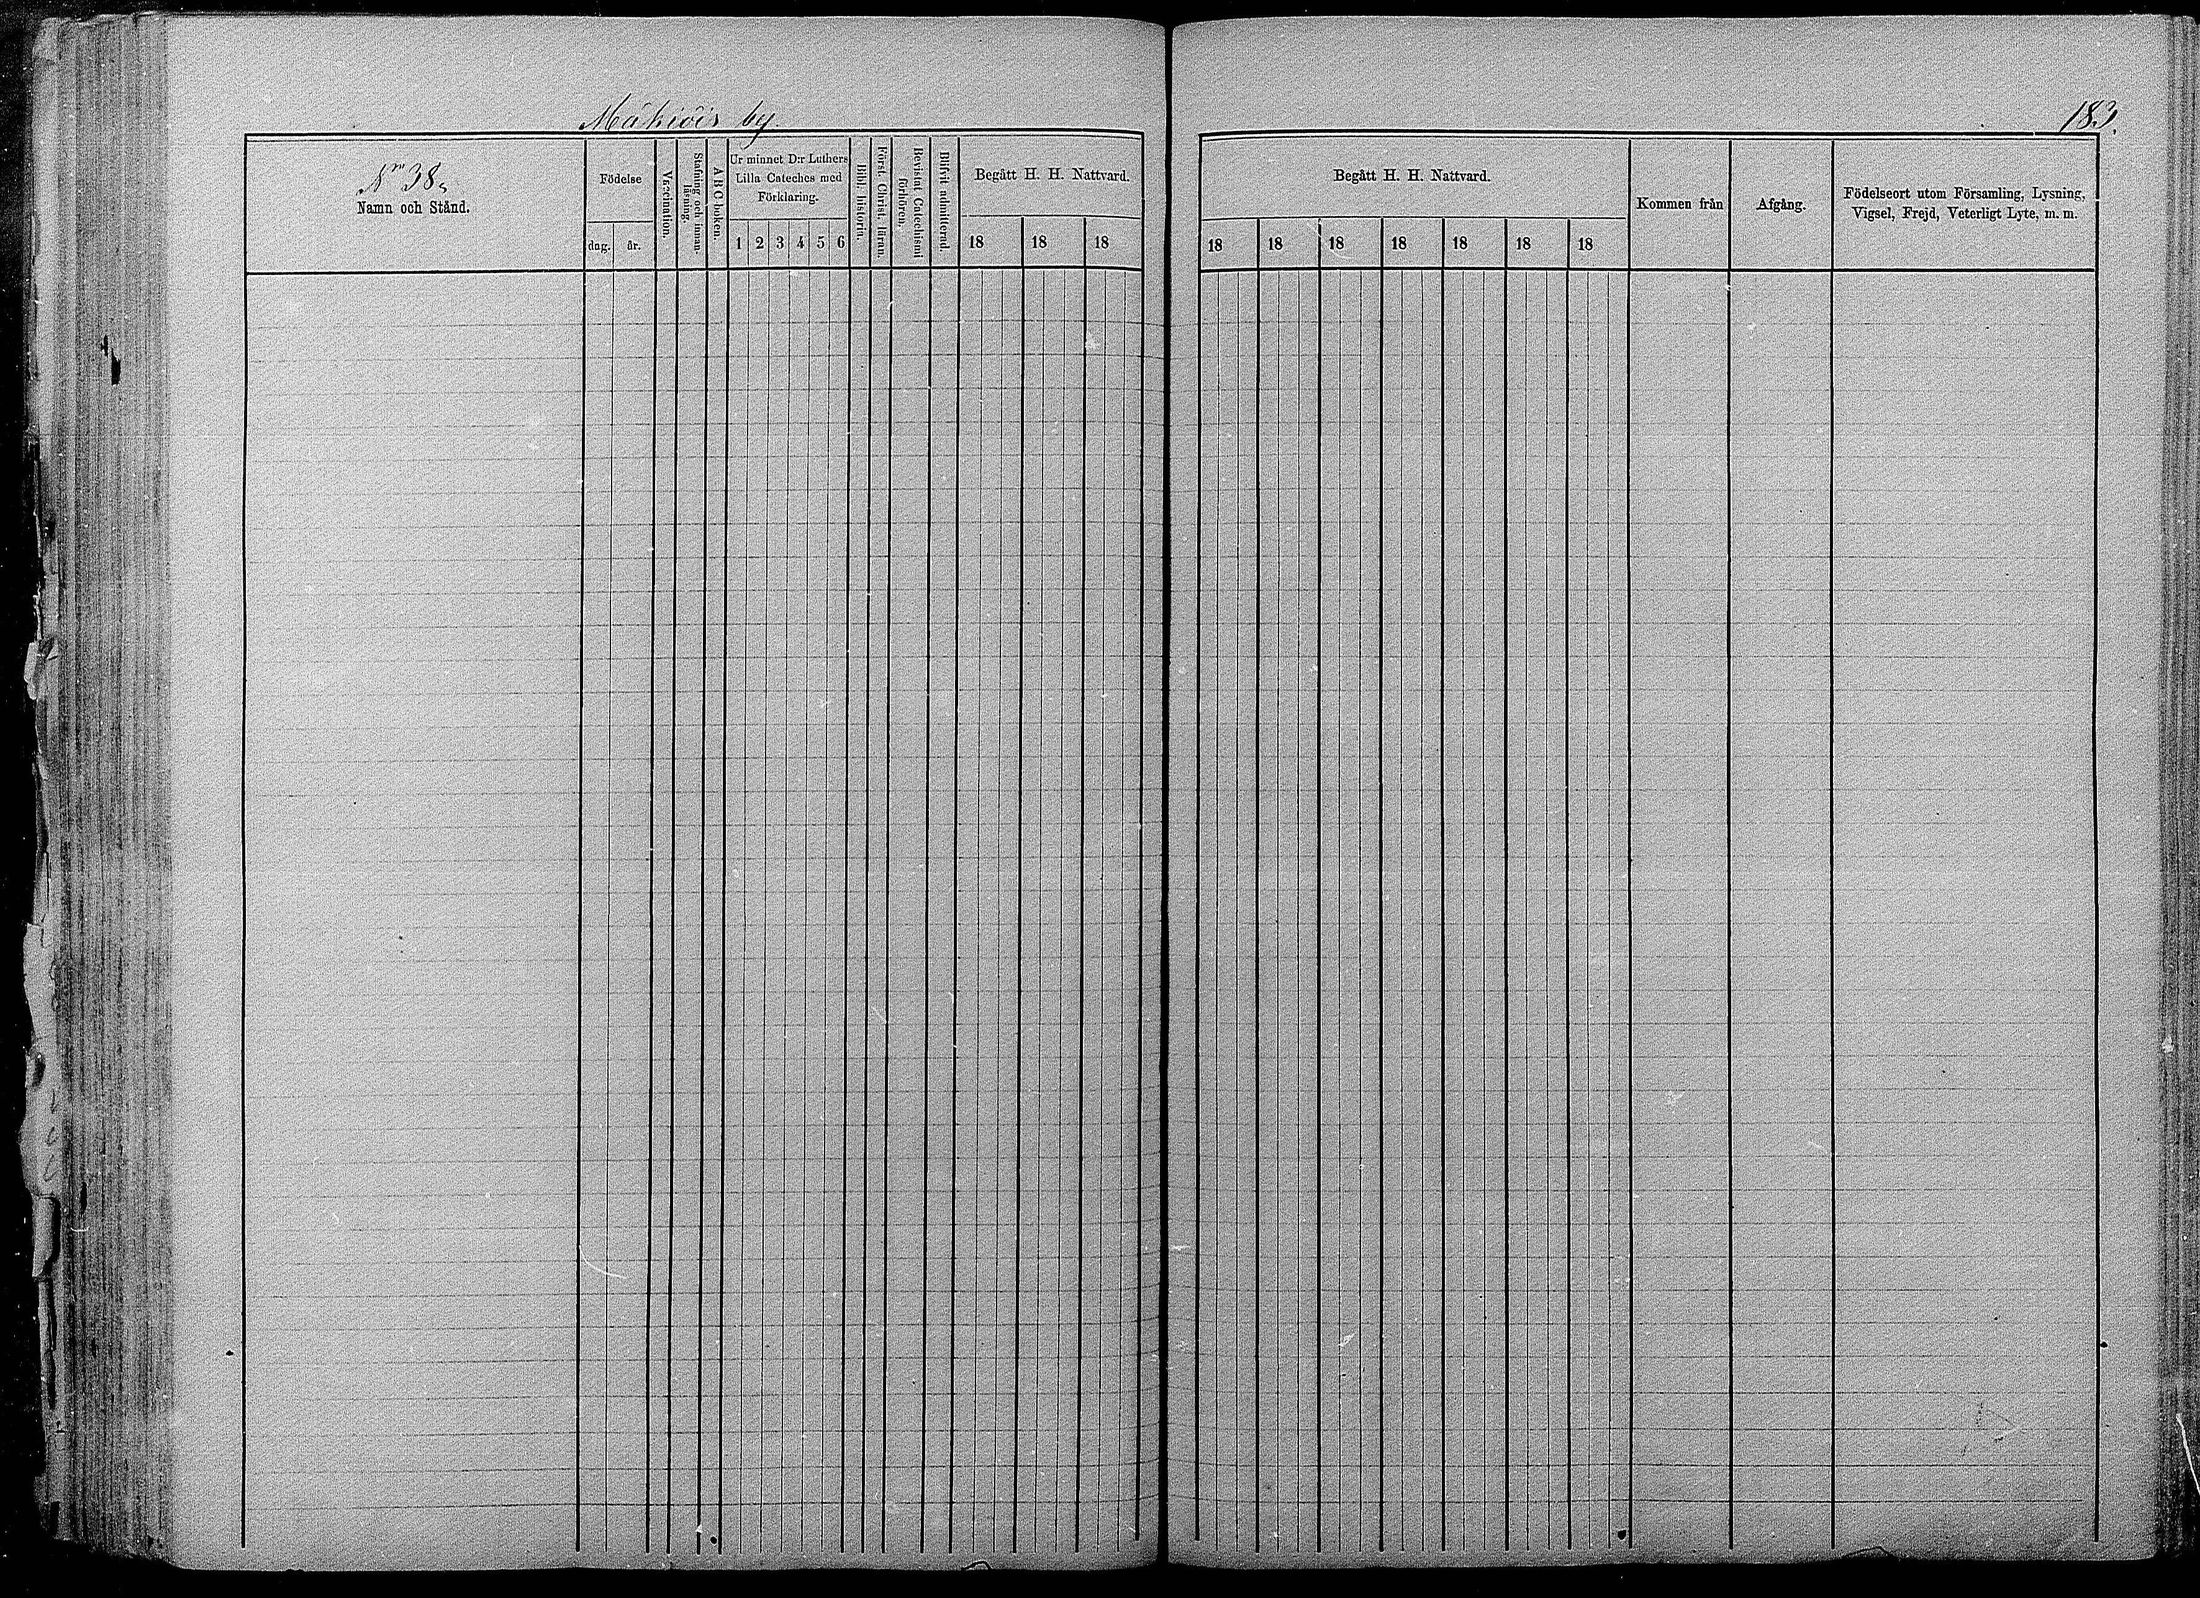 Mähiöis by.
183.
Nr 38.
Namn och Stånd.
Födelse
dag. år.
Vaccination.
Stafning och innan-
läsning.
A B C-boken.
Ur minnet D:r Luthers
Lilla Cateches med
Förklaring.
1 2 3 4 5 6
Bibl. historia.
Först. Christ. läran.
Bevistat Catechismi
förhören.
Blifvit admitterad.
Begått H. H. Nattvard.
18 18 18
Begått H. H. Nattvard.
18 18 18 18 18 18 18
Kommen från
Afgång.
Födelseort utom Församling, Lysning,
Vigsel, Frejd, Veterligt Lyte, m. m.